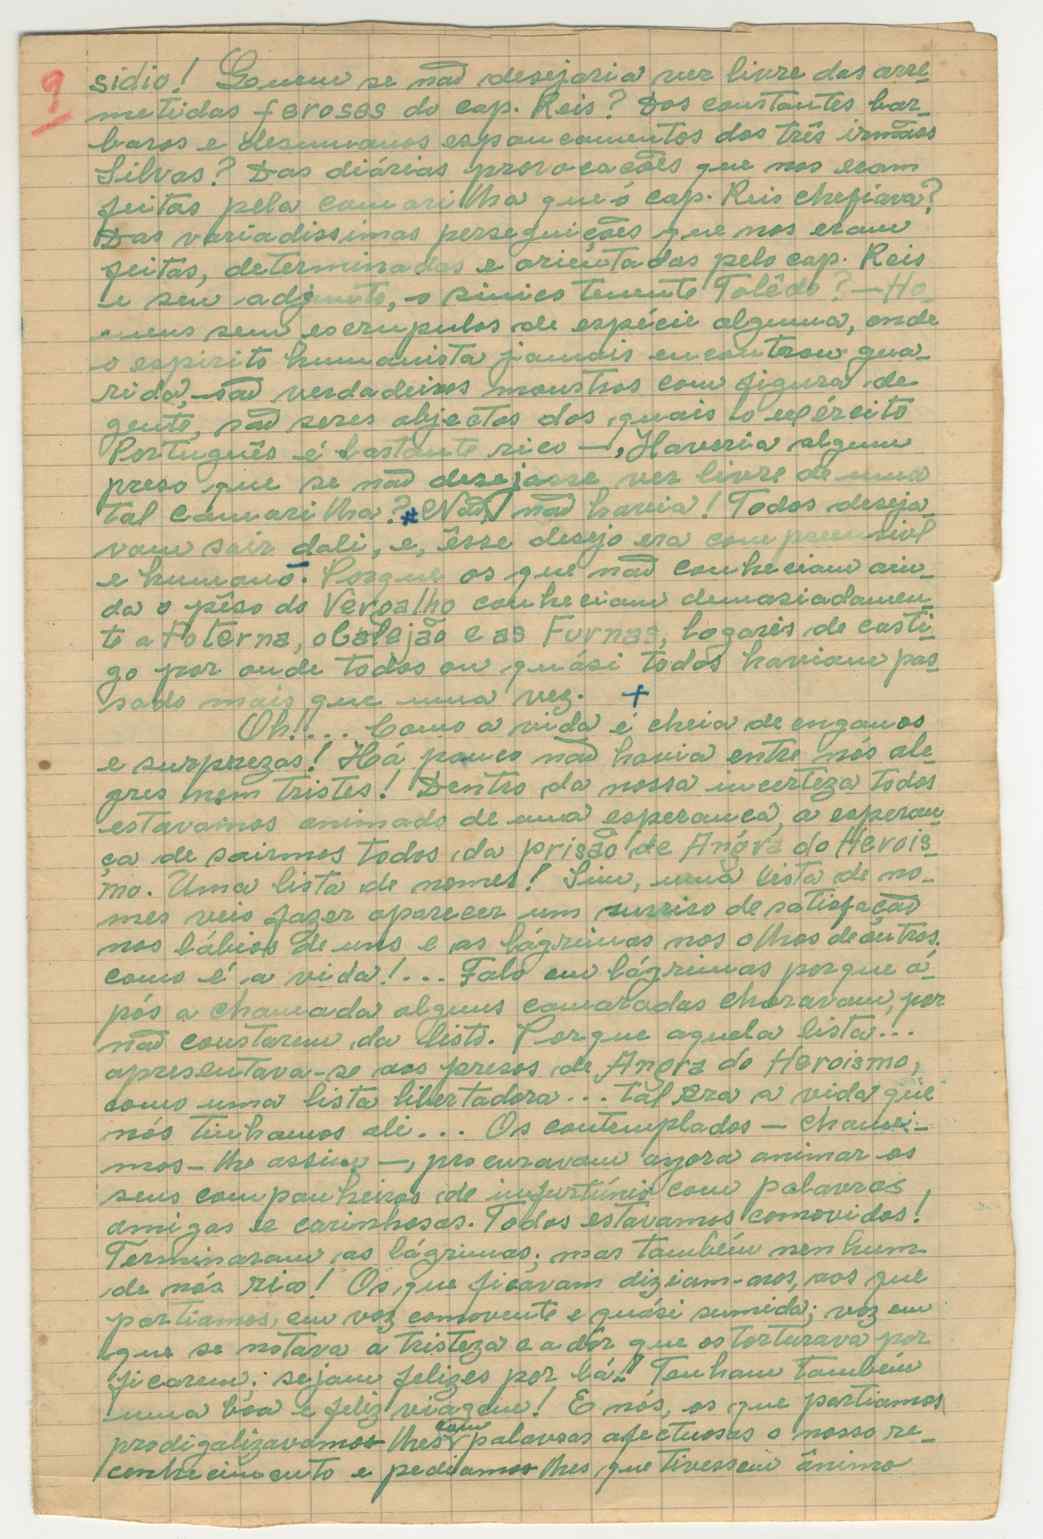 9
sidio! Quem se não desejaria ver livre das arre-
metidas ferosas do cap. Reis? Dos constantes bar-
baros e desumanos espancamentos dos três irmãos
Silvas? Das diárias provocações que nos eram
feitas pela camarilha que o cap. Reis chefiava?
Das variadissimas perseguições que nos eram
feitas, determinadas e orientadas pelo cap. Reis
e seu adjunto, o sinico tenente Tolêdo? — Ho-
mens sem escrupulos de espécie alguma, onde
o espirito humanista jamais encontrou gua-
rida, são verdadeiros monstros com figura de
gente, são seres abjectos dos quais o exército
Português é bastante rico —, Haveria algum
preso que se não desejasse ver livre de uma
tal camarilha? Não, não havia! Todos deseja-
vam sair dali, e, êsse desejo era comprensivel
e humano. Porque os que não conheciam ain-
da o pêso do Vergalho conheciam demasiadamen-
te a Poterna, o Calejão e as Furnas, logares de casti-
go por onde todos ou quási todos haviam pas-
sado mais que uma vez. +
Oh!... Como a vida é cheia de enganos
e surprezas! Há pouco não havia entre nós ale-
gres nem tristes! Dentro da nossa incerteza todos
estavamos animado de uma esperança, a esperan-
ça de sairmos todos da prisão de Angra do Herois-
mo. Uma lista de nomes! Sim, uma lista de no-
mes veio fazer aparecer um surriso de satisfação
nos lábios de uns e as lágrimas nos olhos de outros.
como é a vida!... Falo em lágrimas porque a-
pós a chamada alguns camaradas choravam, por
não constarem da lista. Porque aquela lista...
apresentava-se aos presos de Angra do Heroismo,
como uma lista libertadora... tal era a vida que
nós tinhamos ali... Os contemplados — chamei-
mos-lhe assim —, procuravam agora animar os
seus companheiros de infurtúnio com palavras
amigas e carinhosas. Todos estavamos comovidos!
Terminaram as lágrimas; mas também nenhum
de nós ria! Os que ficavam diziam-nos, aos que
partiamos, em voz comovente e quási sumida; voz em
que se notava a tristeza e a dôr que os torturava por
ficarem: sejam felizes por lá..! Tenham também
uma bôa e feliz viagem! E nós, os que partiamos
prodigalizavamos-lhes com palavras afectuosas o nosso re-
conhecimento e pediamos-lhes que tivessem ânimo